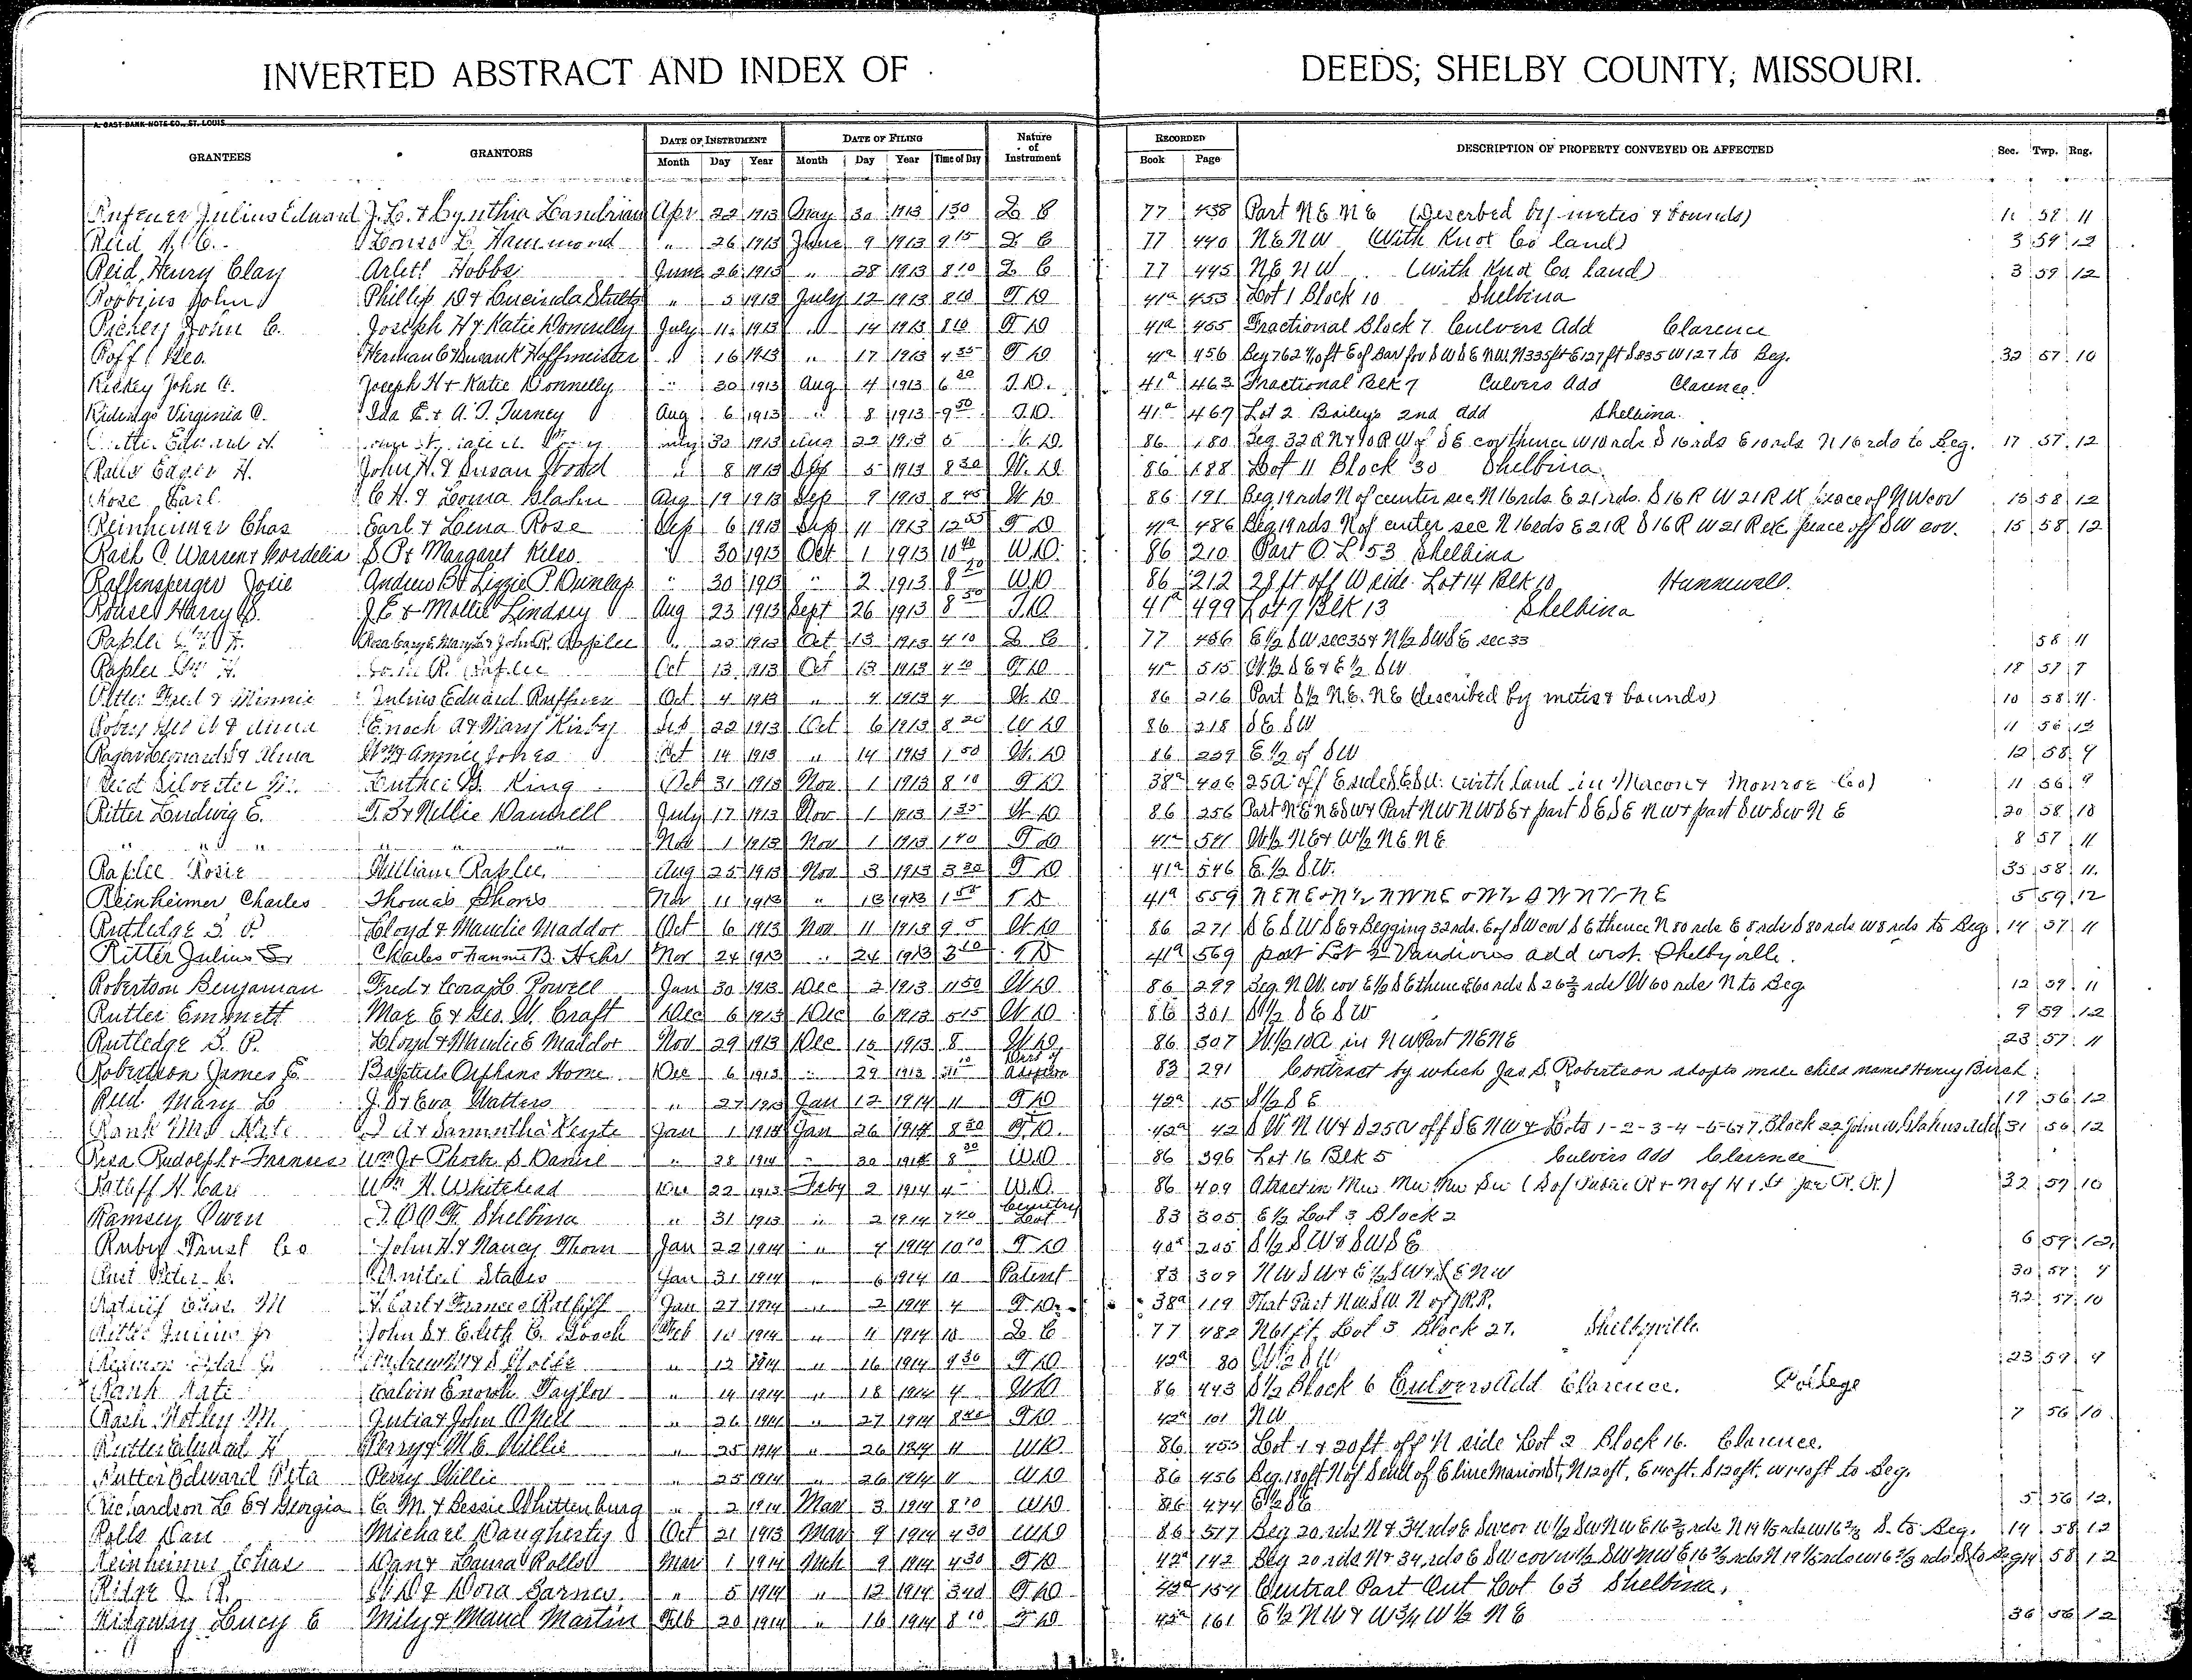 INVERTED ABSTRACT AND INDEX OF DEEDS; SHELBY COUNTY, MISSOURI.
A. GAST BANK NOTE CO., ST. LOUIS
GRANTEES GRANTORS DATE OF INSTRUMENT DATE OF FILING Nature of Instrument RECORDED DESCRIPTION OF PROPERTY CONVEYED OR AFFECTED Sec. Twp. Rng.
Month Day Year Month Day Year Time of Day Book Page
Julius Eduard J. L. & Cynthia Apr 22 1913 May 30 1913 1 30 Q C 77 438 Part NE NE (Described by metes & bounds) 58 11
Reid H. C. Alonso L. Hammond " 26 1913 June 9 1913 9 15 Q C 77 440 NE NW (With Knox Co land) 3 59 12
Reid Henry Clay Arlett Hobbs June 26 1913 " 28 1913 8 10 Q C 77 445 NE NW (with Knox Co land) 3 59 12
Robbins John Phillip D & Lucinda Stultz " 5 1913 July 12 1913 8 10 T D 41a 453 Lot 1 Block 10 Shelbina
Richey John C. Joseph H & Katie Donnelly July 11 1913 " 14 1913 8 10 T D 41a 455 Fractional Block 7 Culvers Add Clarence
Roff Geo. Herman C & Susan K Hoffmeister " 16 1913 " 17 1913 4 35 T D 41a 456 32 57 10
Richey John C. Joseph H & Katie Donnelly " 30 1913 Aug 4 1913 6 20 T.D. 41a 463 Fractional Blk 7 Culvers Add Clarence
Ridings Virginia C. Ida E. & A. T. Turney Aug 6 1913 " 8 1913 9 50 T.D. 41a 467 Lot 2 Baileys 2nd add Shelbina.
July 30 1913 Aug 22 1913 W. D. 86 180 Beg. 32 R N & 90 R W of SE cor thence W 10 rds S 16 rds E 10 rds N 16 rds to Beg. 17 57 12
John H. & Susan Wood " 8 1913 Sep 5 1913 8 30 W. D. 86 188 Lot 11 Block 30 Shelbina
Rose Earl C. H. & Louisa Glahn Aug 19 1913 Sep 9 1913 8 45 W D 86 191 Beg. 19 rds N of center sec. N 16 rds. E 21 rds. S 16 R W 21 R EX peace of NW cor 15 58 12
Reinheimer Chas Earl & Lena Rose Sep 6 1913 Sep 11 1913 T D 41a 486 Beg. 19 rds N of center sec N 16 rds E 21 R S 16 R W 21 R ex peace off SW cor. 15 58 12
Rash C. Warren & Cordelia S. P. & Margaret Kiles " 30 1913 Oct 1 1913 10 40 W.D. 86 210 Part O. L. 53 Shelbina
Raffensperger Josie Andrew B & Lizzie P. Dunlap " 30 1913 " 2 1913 8 20 W.D 86 212 28 ft off W side Lot 14 Blk 10 Hunnewell.
Rouse Harry J. E & Mollie Lindsey Aug 23 1913 Sept 26 1913 8 30 T.D. 41a 499 Lot 7 Blk 13 Shelbina
Raplee Wm H. Raplee " 25 1913 Oct 13 1913 4 10 Q C 77 456 E ½ SW sec 35 & N ½ SW SE sec 33 58 11
Raplee Wm H. John R. Raplee Oct 13 1913 Oct 13 1913 4 10 T D 41a 515 W ½ SE & E ½ SW 18 57 9
Ritter Fred & Minnie Julius Eduard Ruffner Oct 4 1913 " 4 1913 4 W. D 86 216 Part S ½ N.E. NE (described by metes & bounds) 10 58 11
Enoch A & Mary Kirby Sep 22 1913 Oct 6 1913 8 20 W D 86 218 SE SW 11 56 12
Ragan Leonard S & Alma Wm & Annie Jones Oct 14 1913 " 14 1913 1 50 W. D 86 239 E. ½ of SW 12 58 9
Reid Silvester M. Luther B. King Oct 31 1913 Nov 1 1913 8 10 T D 38a 406 25 A off E side SE SW. (with land in Macon & Monroe Co) 11 56 9
Ritter Ludwig E. T. S & Nellie Dannell July 17 1913 Nov 1 1913 1 35 W D 86 256 Part NE NE SW & Part NW NW SE & part SE SE NW & part SW SW NE 20 58 10
" " " " " Nov 1 1913 Nov 1 1913 1 40 T D 41a 541 W ½ NE & W ½ NE NE 8 57 11
Raplee Rosie William Raplee Aug 25 1913 Nov 3 1913 3 20 T D 41a 546 E. ½ SW. 35 58 11.
Reinheimer Charles Thomas Shores Nov 11 1913 " 13 1913 T D 41a 559 5 59 12
Rutledge S. P. Cloyd & Maudie Maddox Oct 6 1913 Nov 11 1913 9 5 W D 86 271 SE SW SE & Begging 32 rds. E of SW cor SE thence N 80 rds E 8 rds S 80 rds W 8 rds to Beg 14 57 11
Ritter Julius Sr Charles & Fannie B. Hehr Nov 24 1913 " 24 1913 3 T D 41a 569 part Lot 2 Vandivers add west Shelbyville.
Robertson Benjaman Fred & Cora C Powell Jan 30 1913 Dec 2 1913 11 50 W D 86 299 Beg. N.W. cor E ½ SE thence E 60 rds S 26 ⅔ rds W 60 rds N to Beg 12 59 11
Rutter Emmett Max E & Geo. W. Craft Dec 6 1913 Dec 6 1913 5 15 W D 86 301 S ½ SE SW 9 59 12
Rutledge S. P. Cloyd & Maudie E Maddox Nov 29 1913 Dec 15 1913 8 W D 86 307 W. ½ 10 A in NW Part NE NE 23 57 11
Robertson James S Baptists Orphans Home Dec 6 1913 " 29 1913 Deed of Adoption 83 291 Contract by which Jas S. Robertson adopts male child named Henry Birch
Reid Mary L J. S & Eva Watters " 27 1913 Jan 12 1914 11 T D 42a 15 S ½ SE 19 56 12
Rank Mrs Kate & Samantha Keyte Jan 1 1914 Jan 26 1914 8 30 T.D. 42a 42 SW NW & S 25 A off SE NW & Lots 1-2-3-4-5-6&7. Block 22 John W. Glahns Add 31 56 12
Rudolph & Frances Wm J & Phoebe S Daniel " 28 1914 " 30 1914 8 30 W.D 86 396 Lot 16 Blk 5 Culvers Add Clarence
Ratliff H. Carl Wm H. Whitehead Dec 22 1913 Feby 2 1914 4 W.D. 86 409 32 57 10
Ramsey Owen I.O.O.F. Shelbina " 31 1913 " 2 1914 7 40 Cemetery Deed 83 305 E ½ Lot 3 Block 2
Ruby Trust Co John H & Nancy Thorn Jan 22 1914 " 4 1914 10 10 T D 40a 205 S ½ SW & SW SE 6 59 12
Rust Peter United States Jan 31 1914 " 6 1914 10 Patent 83 309 NW SW & E ½ SW & SE NW 30 57 9
Ratliff Chas. M H. Carl & Frances Ratliff Jan 27 1914 " 2 1914 4 T.D. 38a 119 That Part NW SW. N of R.R. 32 57 10
Ritter Julius Jr John S & Edith C. Gooch Feb 10 1914 " 11 1914 10 Q C 77 482 N 61 ft. Lot 3 Block 27. Shelbyville
" 12 1914 " 16 1914 9 30 T D 42a 80 W ½ SW 23 59 9
Rank Kate Calvin Enoch Taylor " 14 1914 " 18 1914 4 W D 86 443 S ½ Block 6 Culvers Add Clarence. College
Rash Notley M. Julia & John O'Neil " 26 1914 " 27 1914 T D 42a 101 NW 7 56 10
Rutter Edward H Perry & M. E. Willie " 25 1914 " 26 1914 11 W D 86 455 Lot 1 & 20 ft off N side Lot 2 Block 16. Clarence.
Rutter Edward Pita Perry Willie " 25 1914 " 26 1914 11 W D 86 456 Beg. 180 ft N of S end of E line Marion St, N 120 ft, E 140 ft. S 120 ft. W 140 ft to Beg.
Richardson L E & Georgia C. M. & Bessie Whittenburg " 2 1914 Mar 3 1914 8 10 W D 86 474 E ½ SE 5 56 12.
Rolls Dan Michael Daugherty Oct 21 1913 Mar 9 1914 4 30 W D 86 517 Beg 20 rds N & 34 rds E SW cor W ½ SW NW E 16 ⅔ rds N 19 ⅕ rds W 16 ⅔ S. to Beg. 14 58 12
Reinheimer Chas Dan & Laura Rolls Mar 1 1914 Mch 9 1914 4 30 T D 42a 142 Beg 20 rds N & 34 rds E SW cor W ½ SW NW E 16 ⅔ rds N 19 ⅕ rds W 16 ⅔ rds S to Beg 14 58 12
Ridge & Dora Barnes " 5 1914 " 12 1914 3 40 T D 42a 154 Central Part Out Lot 63 Shelbina.
Ridgway Lucy E Mily & Maud Martin Feb 20 1914 " 16 1914 8 10 T D 42a 161 E ½ NW & W ¾ W ½ NE 36 56 12